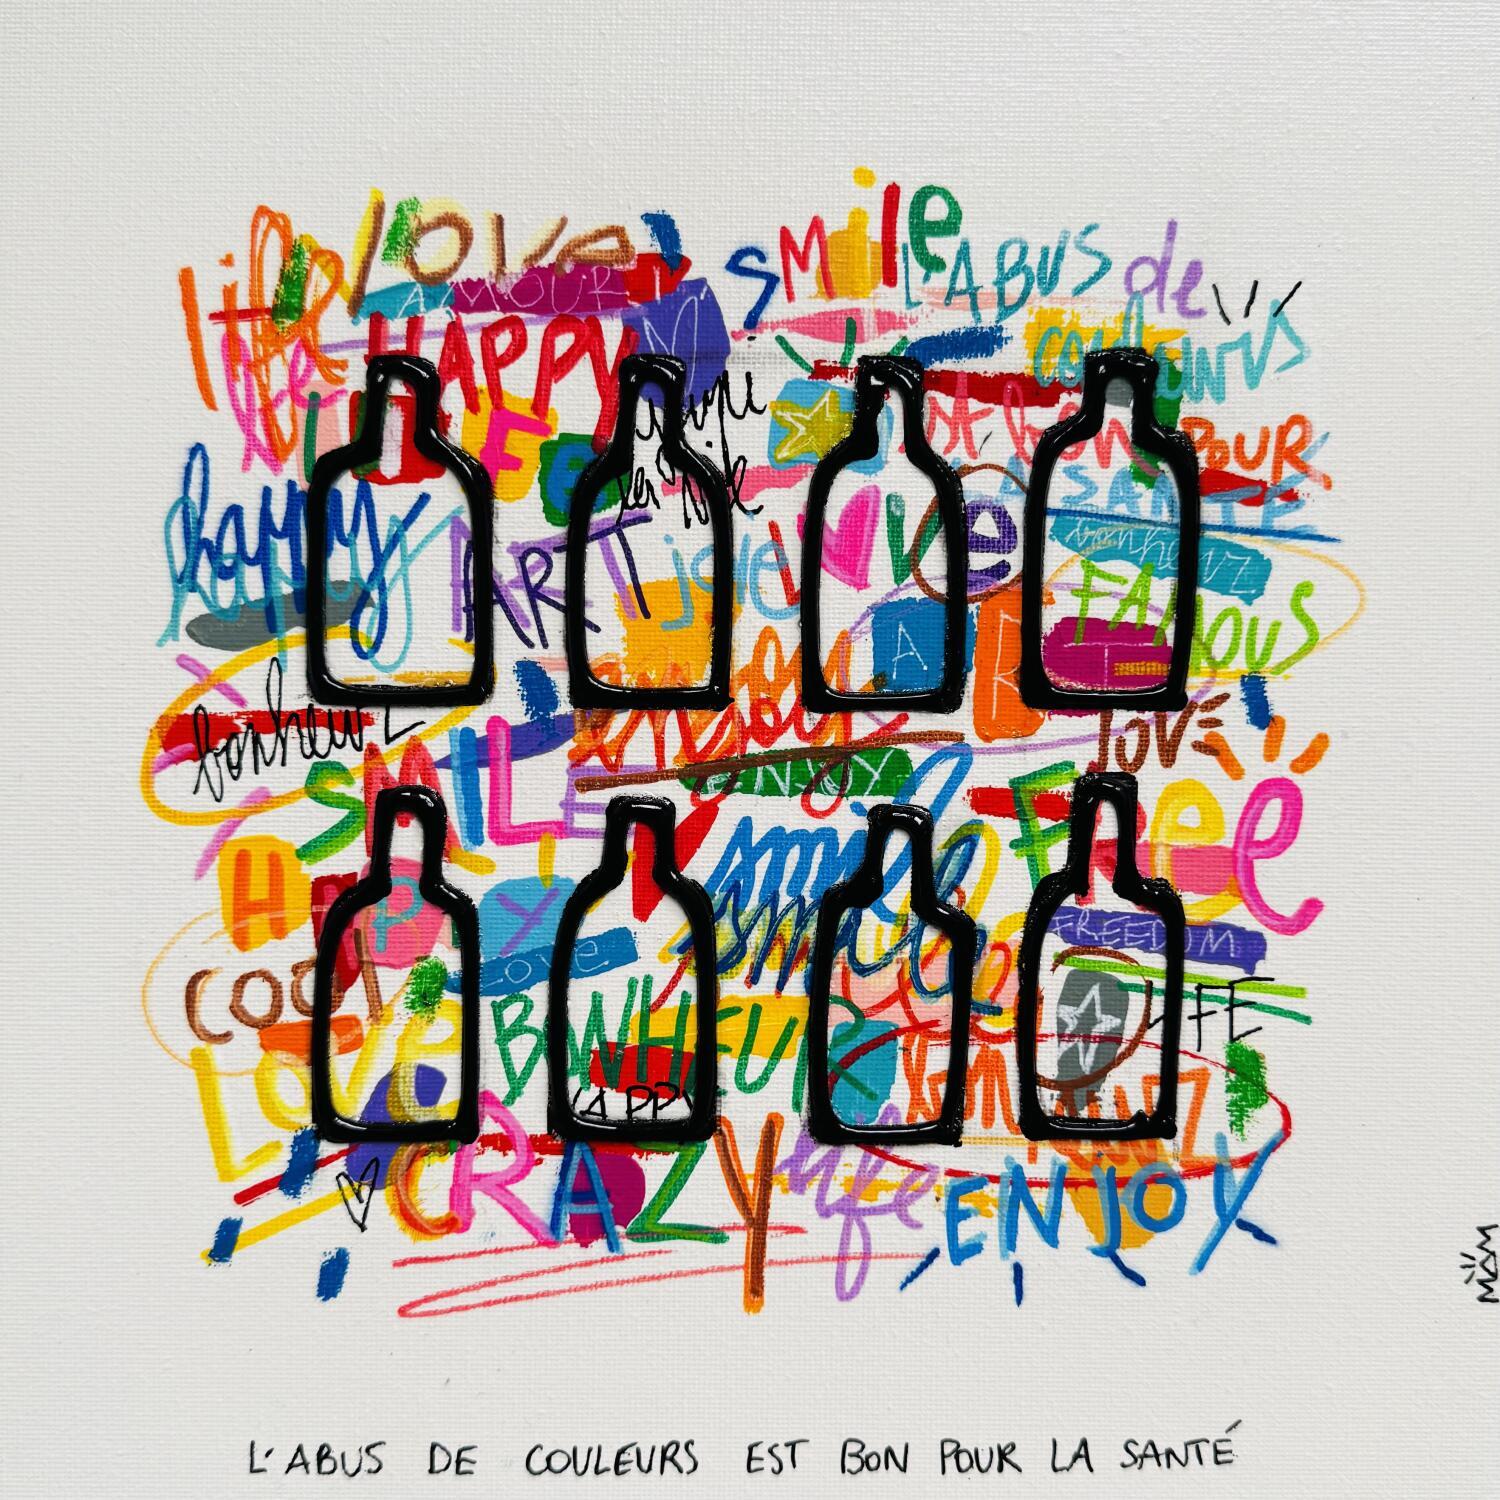 life love smile
AMOUR L'ABUS de
HAPPY couleurs
life est bon POUR
LA SANTÉ
happy ART joie LOVE bonheur
happy FAMOUS
A R T
bonheur enjoy love
SMILE ENJOY FREE
HAPPY smile
love smile FREEDOM
COOL BONHEUR LIFE
LOVE HAPPY bonheur
CRAZY life ENJOY
MAM
L'ABUS DE COULEURS EST BON POUR LA SANTÉ